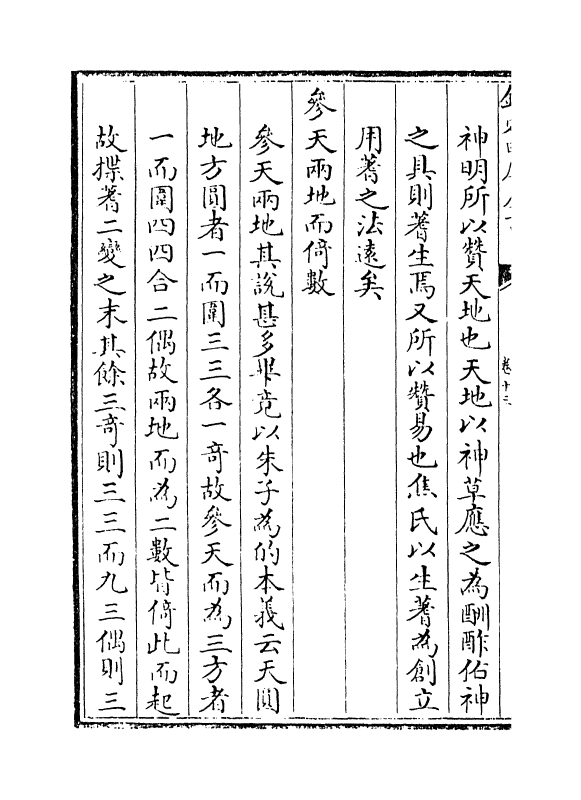 神明所以贊天地也天地以神草應之為酬酢佑神
之具則蓍生焉又所以贊易也焦氏以生蓍為創立
用蓍之法遠矣
參天兩地而倚數
參天兩地其説甚多畢竟以朱子為的本義云天圓
地方圓者一而圍三三各一奇故參天而為三方者
一而圍四四合二偶故兩地而為二數皆倚此而起
故揲蓍三變之末其餘三奇則三三而九三偶則三
卷十三